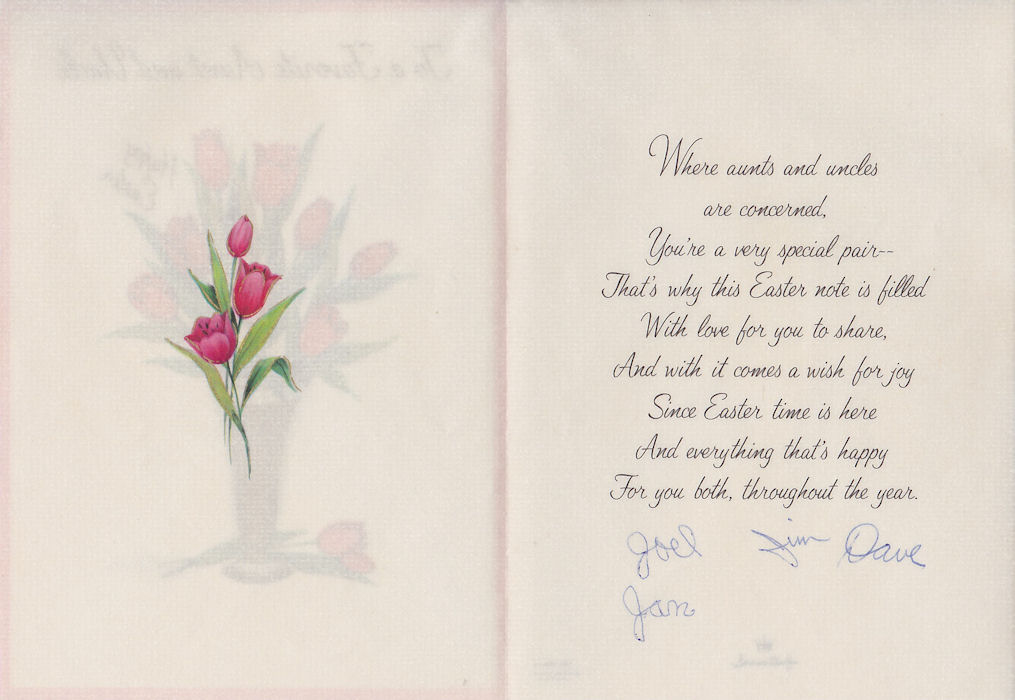 To a Favorite Aunt and Uncle
Where aunts and uncles
are concerned,
You're a very special pair--
That's why this Easter note is filled
With love for you to share,
And with it comes a wish for joy
Since Easter time is here
And everything that's happy
For you both, throughout the year.
Joel Jim Dave
Jan